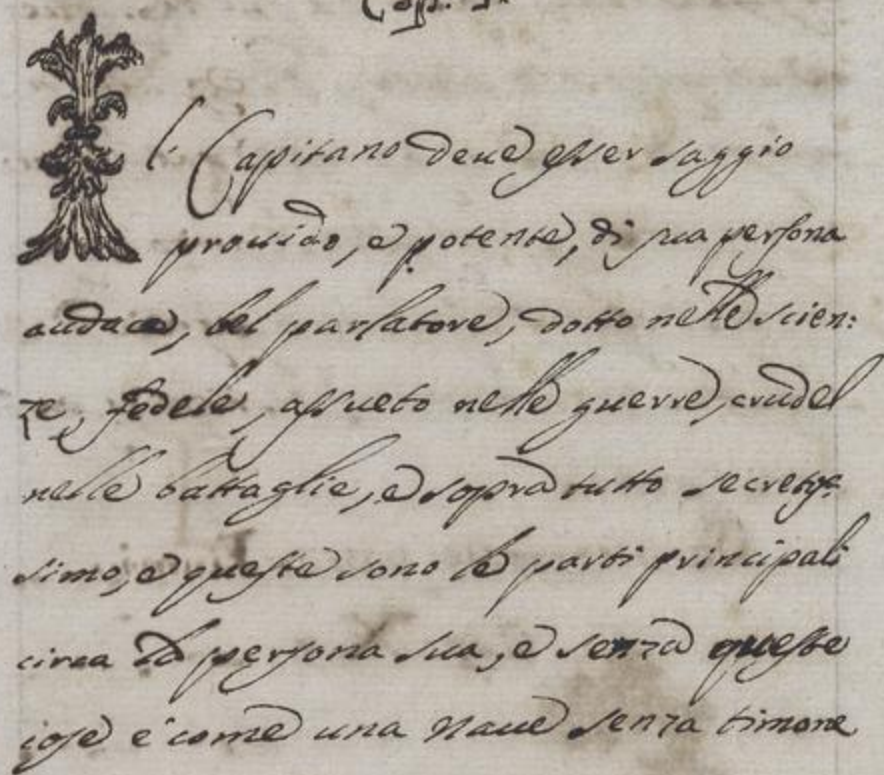 Cap. I.
Il Capitano deue esser saggio
prouido, e potente, di sua persona
audace, bel parlatore, dotto nelle scien:
ze, fedele, assueto nelle guerre, crudel
nelle battaglie, e sopra tutto secretis:
simo, e queste sono le parti principali
circa la persona sua, e senza queste
cose e' come una naue senza timone